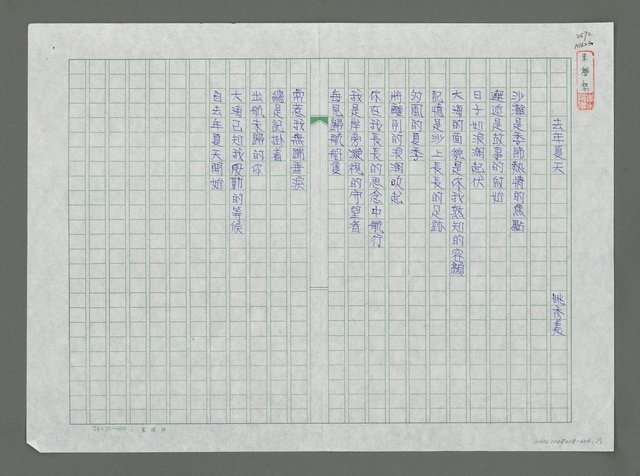 去年夏天
姚秀美
沙灘是季節熱情的焦點
邂逅是故事的啟始
日子如浪潮起伏
大海的面貌是你我熟知的容顏
記憶是沙上長長的足跡
的風的夏季
將離別的浪潮吹起
你在我長長的思念中航行
我是岸旁凝視的守望者
每見歸航船隻
常惹我無端垂淚
總是記掛著
出航未歸的你
大海已知我殷勤的等候
自去年夏天開始
24×25=600